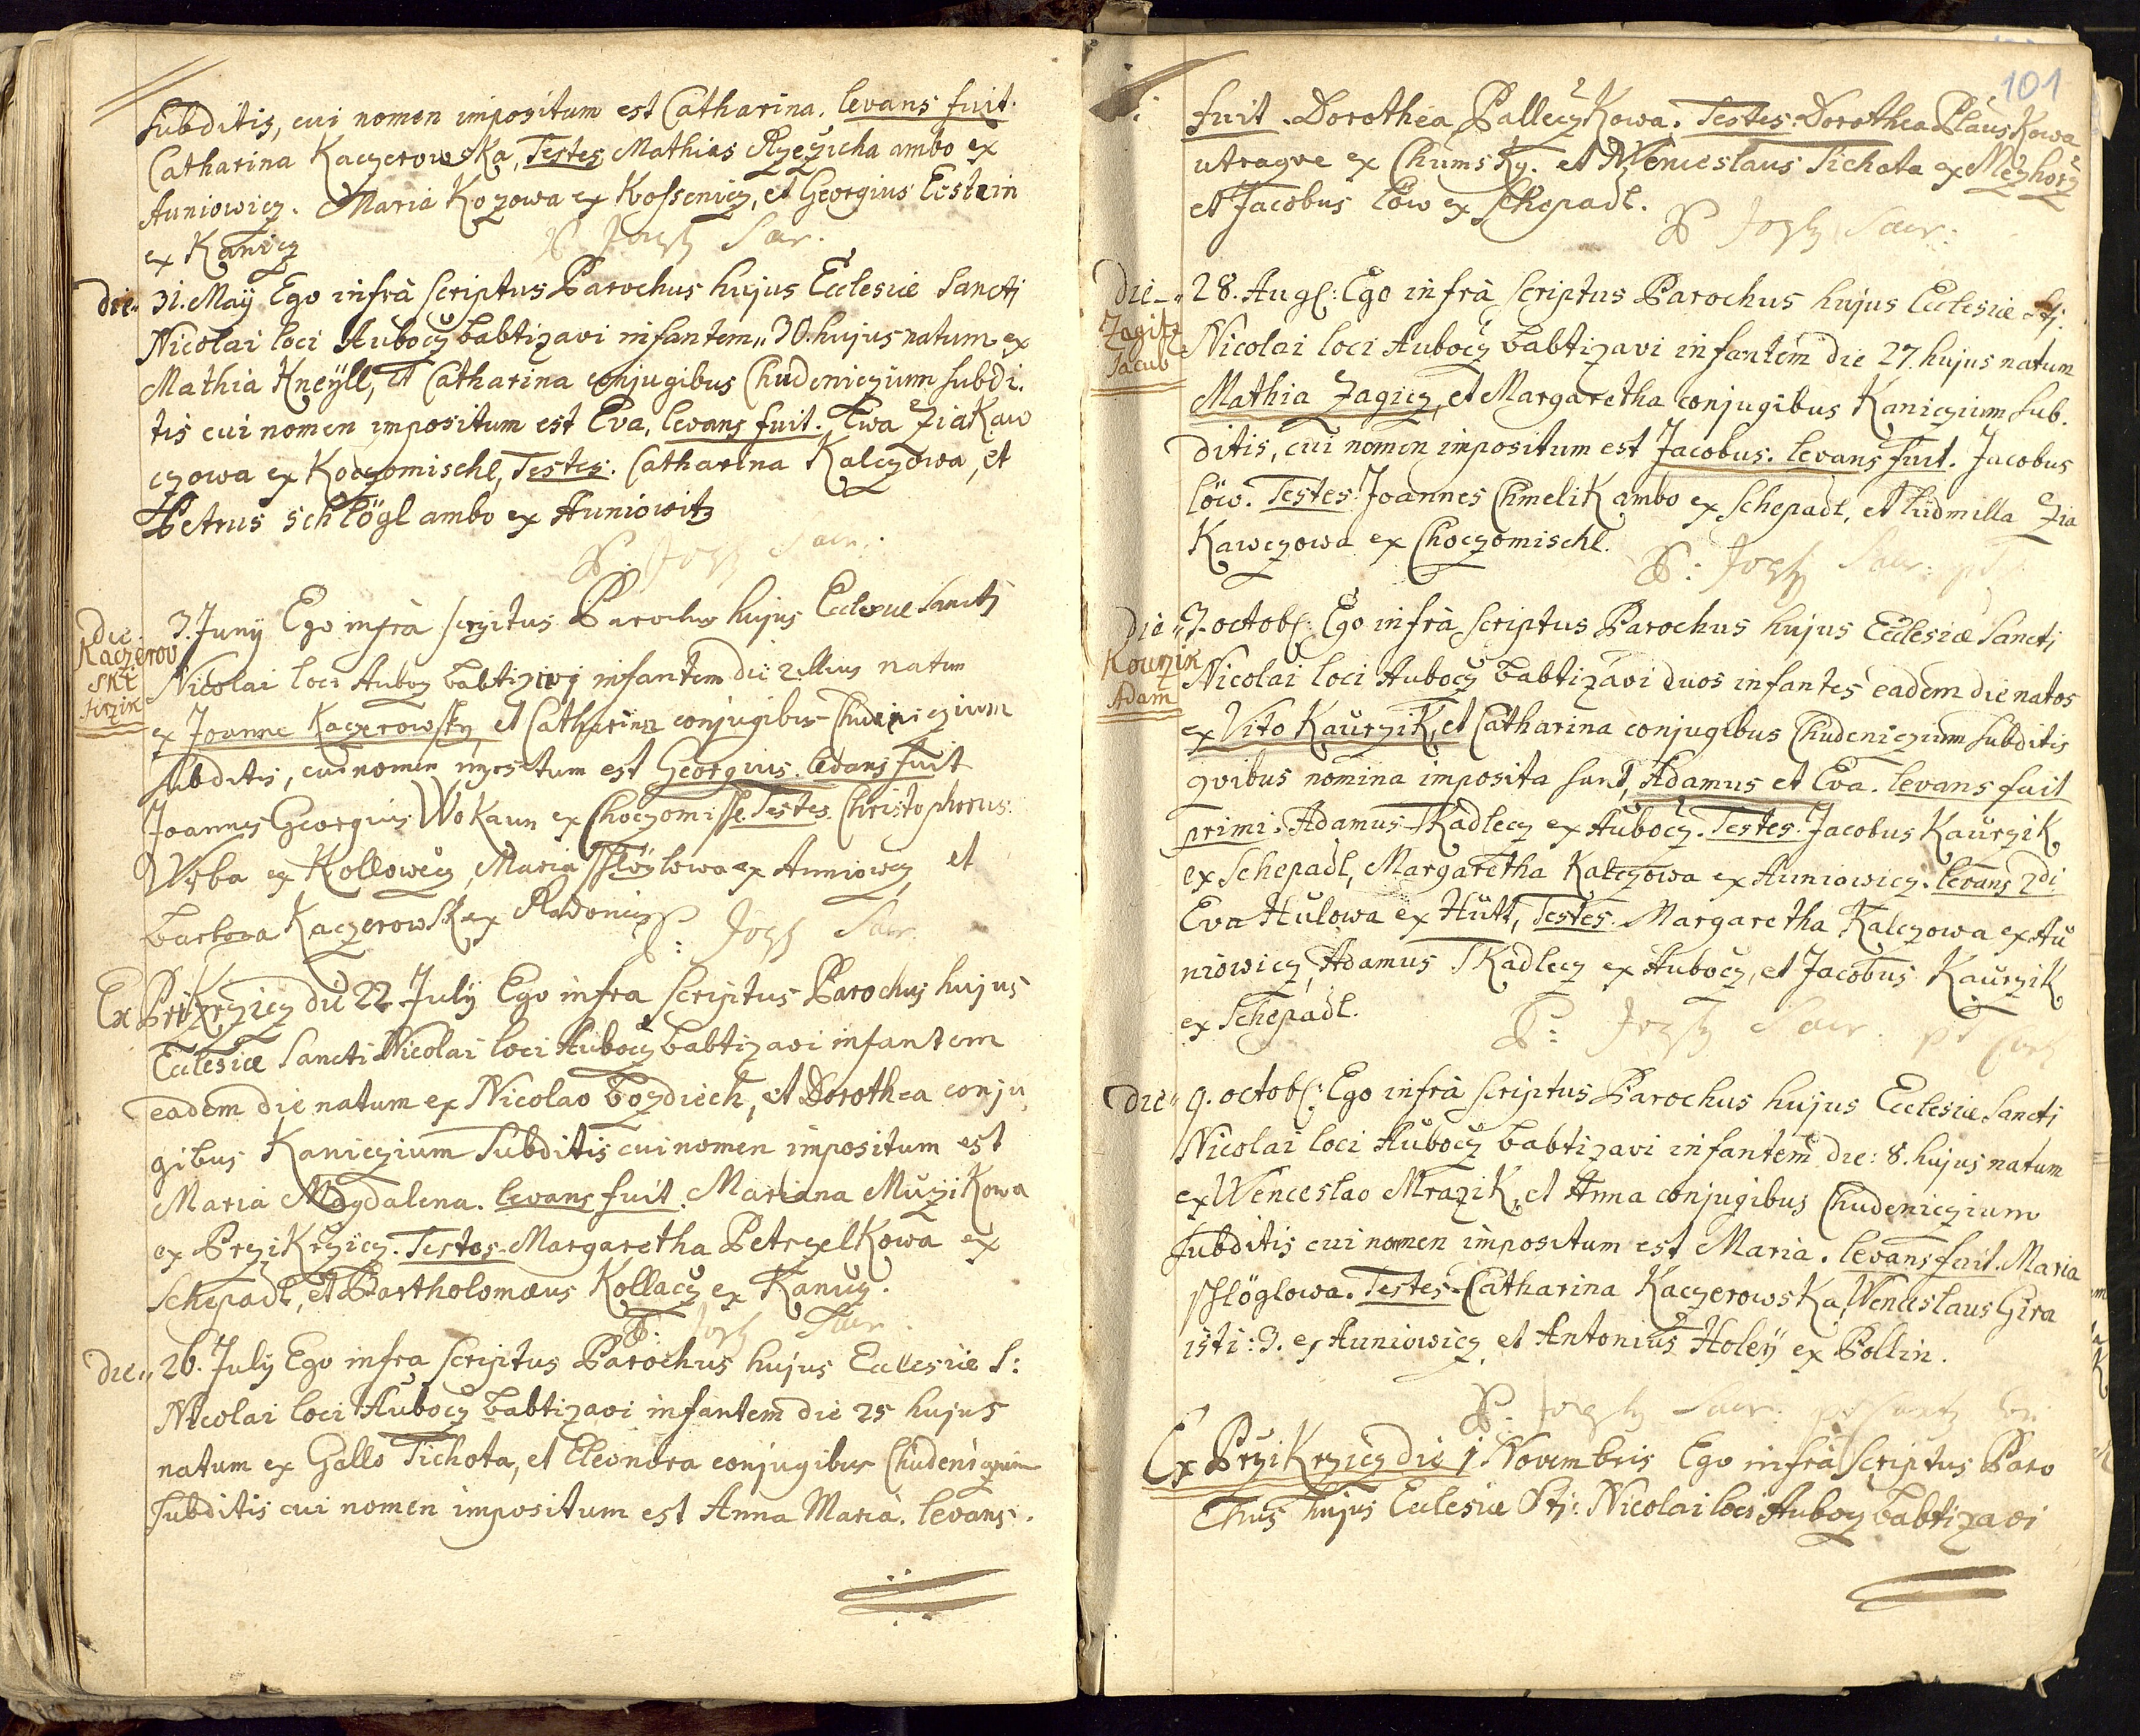 subditis, cui nomen impositum est Catharina. levans fuit.
Catharina Kaczerowska, Testes Mathias Rzezicha ambo ex
Auniowicz. Maria Kozowa ex Kossenicz, et Georgius Ecstein
ex Kanicz
P. Sacr.
die 31. Maÿ Ego infrà scriptus Parochus hujus Ecclesiæ Sancti
Nicolai loci Aubocz babtizavi infantem 30. hujus natum ex
Mathia Kneÿll, et Catharina conjugibus Chudeniczium subdi.
tis cui nomen impositum est Eva, levans fuit. Ewa ZiaKaw
czowa ex Koczomischl, Testes. Catharina Kalczowa, et
Petrus Schlögl ambo ex Auniowitz
P. Sacr.
die 3. Junÿ Ego infrà scriptus Parochus hujus Ecclesiæ Sancti
Kaczerov
ski
Jirzik
Nicolai loci Auboz babtizavi infantem die 2 illius natum
ex Joanne Kaczerowsky, et Catharina conjugibus Chudeniczium
subditis, cui nomen impositum est Georgius. levans fuit
Joannes Georgius WoKaun ex Choczomissl. Testes. Christophorus
Wrba ex Kollowecz, Maria Sslöglowa ex Auniowcz, et
Barbora Kaczerowsk ex Radonicz
P: Sacr
Ex PrziKrzicz die 22 Julÿ Ego infra scriptus Parochus hujus
Ecclesiæ Sancti Nicolai loci Aubocz babtizavi infantem
eadem die natum ex Nicolao Bozdiech, et Dorothea conju
gibus Kaniczium Subditis cui nomen impositum est
Maria Magdalena. levans fuit. Mariana MuziKowa
ex PrziKrzicz. Testes. Margaretha PetrzelKowa ex
Schepadl, et Bartholomæus Kollacz ex Kanicz.
P. Sacr
die 26. Julÿ Ego infra scriptus Parochus hujus Ecclesiæ S:
Nicolai loci Aubocz babtizavi infantem die 25 hujus
natum ex Gallo Tichota, et Eleonora conjugibus Chudeniczium
subditis cui nomen impositum est Anna Maria. levans.
101
fuit. Dorothea PalleczKowa. Testes. Dorothea PlausKowa
utraque ex Chumsky. et Wenceslaus Tichota ex Mezhorz
et Jacobus Löw ex Schepadl.
P Sacr:
die 28. Aug: Ego infrà scriptus Parochus hujus Ecclesiæ Sti.
Zagitz
Jacub
Nicolai loci Aubocz babtizavi infantem die 27. hujus natum
Mathia Zagicz, et Margaretha conjugibus Kaniczium sub.
ditis, cui nomen impositum est Jacobus. levans fuit. Jacobus
Löw. Testes. Joannes Chmelik ambo ex Schepadl, et Ludmilla Zia
Kawczowa ex Choczomischl.
P: Sacr:
die 7. octob: Ego infrà scriptus Parochus hujus Ecclesiæ Sancti
Kourzik
Adam
Nicolai loci Aubocz babtizavi duos infantes eadem die natos
ex Vito KaurziK, et Catharina conjugibus Chudeniczium subditis
qvibus nomina imposita sunt, Adamus et Eva. levans fuit
primi. Adamus SKadlecz ex Aubocz. Testes. Jacobus KaurziK
ex Schepadl, Margaretha Kalczowa ex Auniowicz. levans 2di
Eva Hulowa ex Hutt, Testes. Margaretha Kalczowa ex Au
niowicz, Adamus SKadlecz ex Aubocz, et Jacobus KaurziK
ex Schepadl.
P: Sacr.
die 9. octob: Ego infrà scriptus Parochus hujus Ecclesiæ Sancti
Nicolai loci Aubocz babtizavi infantem die: 8. hujus natum
ex Wenceslao MraziK, et Anna conjugibus Chudeniczium
subditis cui nomen impositum est Maria. levans fuit. Maria
Sslöglowa. Testes. Catharina KaczerowsKa, Wenceslaus Gira
isti: 3. ex Auniowicz, et Antonius Holeÿ ex Pollin.
P. Sacr:
Ex PrziKrzicz die 1 Novembris Ego infrà scriptus Paro
chus hujus Ecclesiæ Sti: Nicolai loci Aubocz babtizavi